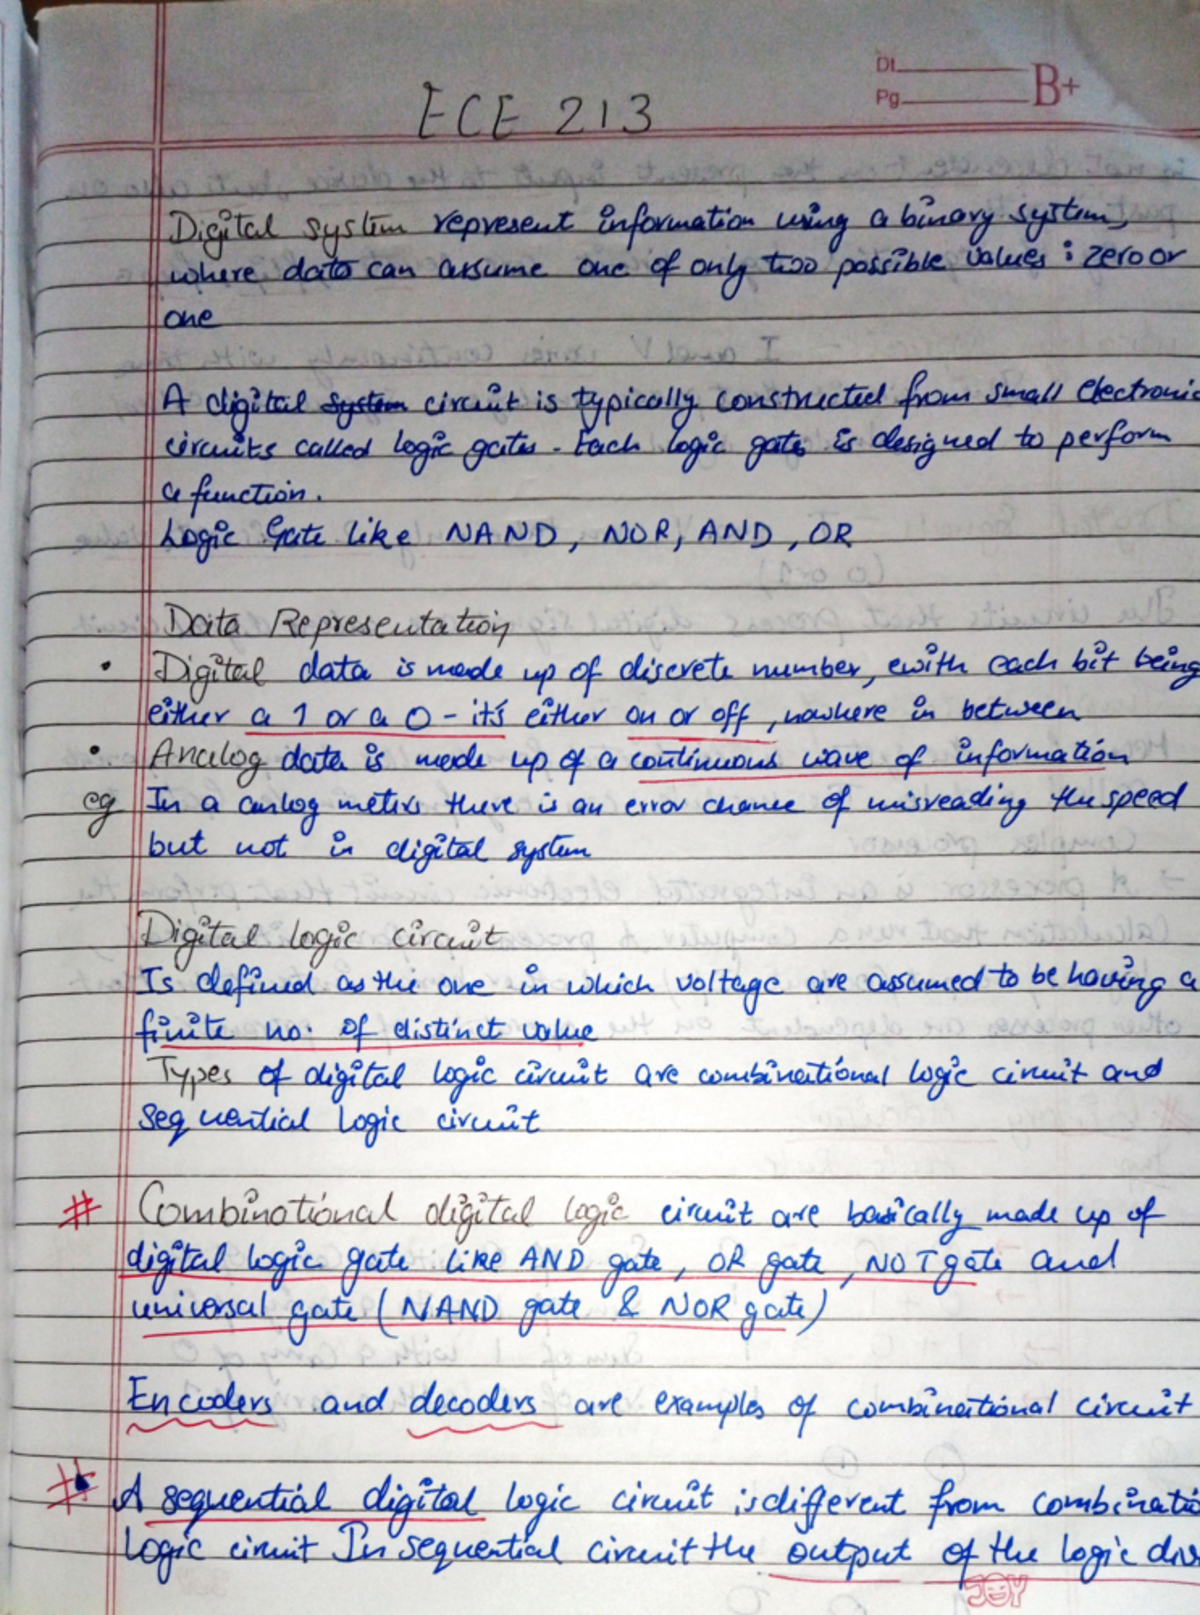 Dt.
Pg.
B+
ECE 213
Digital system represent information using a binary system,
where data can assume one of only two possible values : zero or
one
A digital system circuit is typically constructed from small electronic
circuits called logic gates. Each logic gate is designed to perform
a function.
Logic Gate like NAND, NOR, AND, OR
Data Representation
• Digital data is made up of discrete number, with each bit being
either a 1 or a 0 - it's either on or off, nowhere in between
• Analog data is made up of a continuous wave of information
eg In a anlog meters there is an error chance of misreading the speed
but not in digital system
Digital logic circuit
Is defined as the one in which voltage are assumed to be having a
finite no. of distinct value
Types of digital logic circuit are combinational logic circuit and
sequential logic circuit
# Combinational digital logic circuit are basically made up of
digital logic gate like AND gate, OR gate, NOT gate and
universal gate (NAND gate & NOR gate)
Encoders and decoders are examples of combinational circuit
# A sequential digital logic circuit is different from combinatio
logic circuit In sequential circuit the output of the logic
JOY